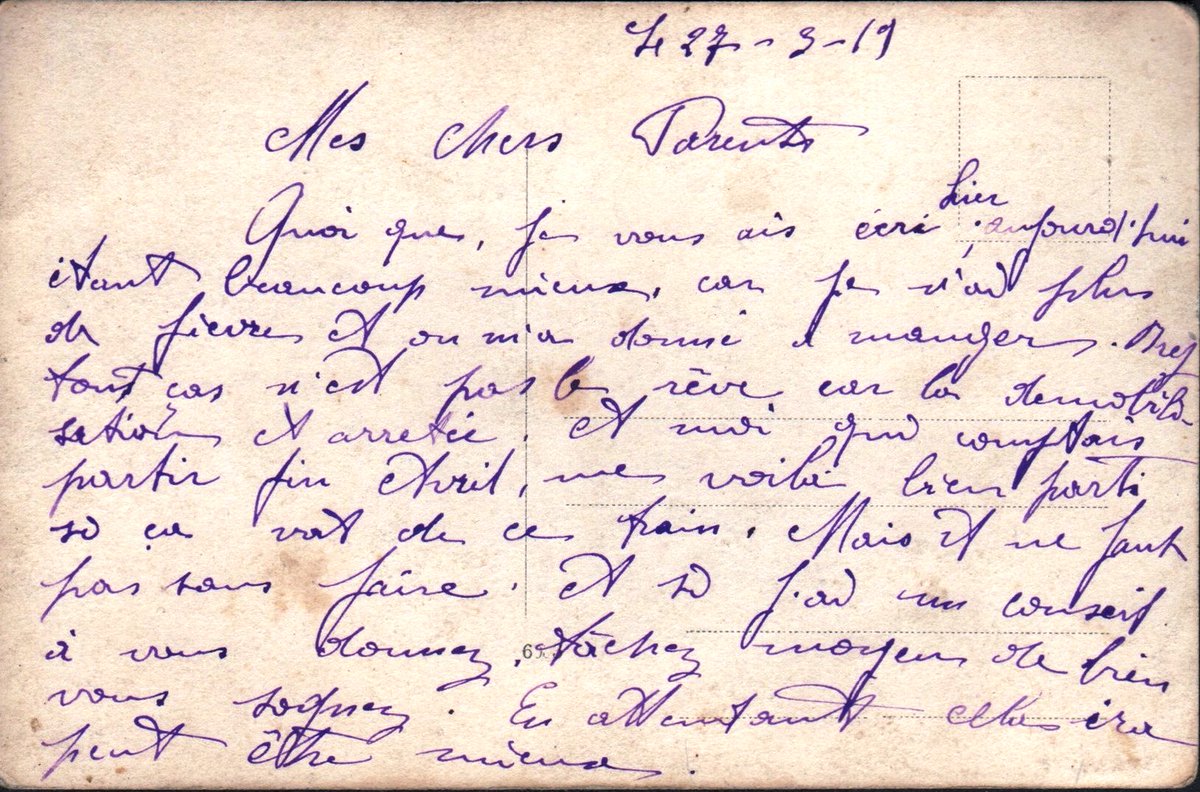 Le 27-3-19
Mes chers Parents
hier
Quoi que, je vous ais écri, aujourd'hui
étant beaucoup mieux, car je n'ai plus
de fievre et on m'a donné à manger. Bref
tout cas n'est pas le rêve car la demobili-
sation et arretée. Et moi qui comptais
partir fin Avril, me voilà bien parti
si ça vat de ce train. Mais il ne faut
pas sans faire. Et si j'ai un conseil
à vous donnez, tâchez moyen de bien
vous soignez. En attentant cela ira
peut être mieux.